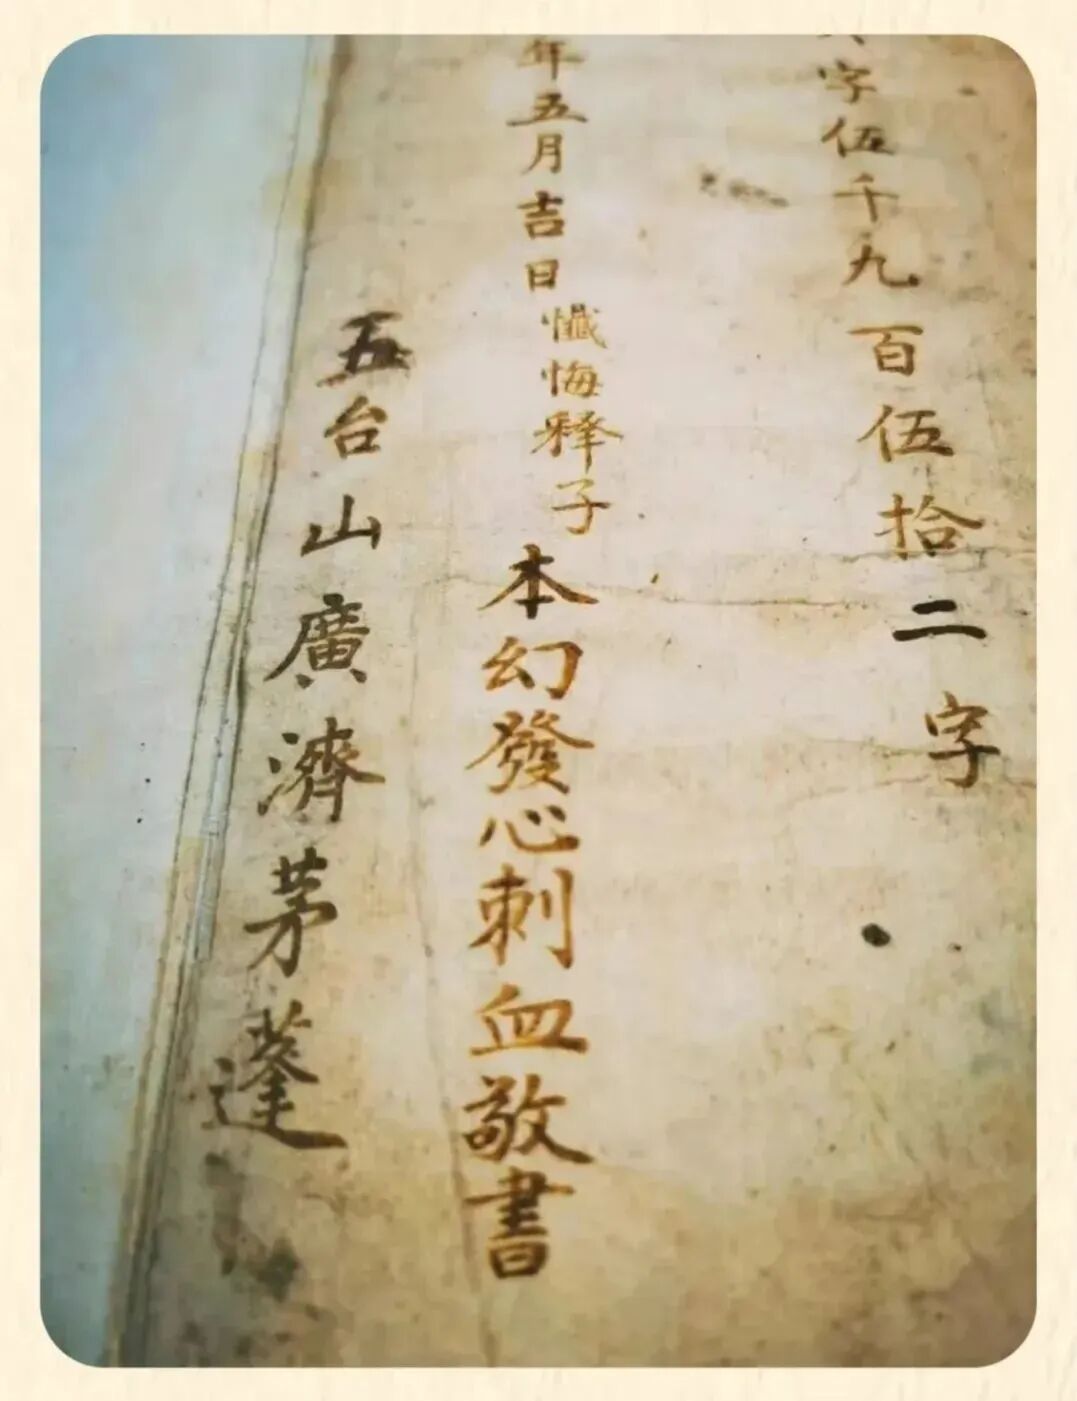 字伍千九百伍拾二字
年五月吉日懺悔釋子本幻發心刺血敬書
五台山廣濟茅蓬